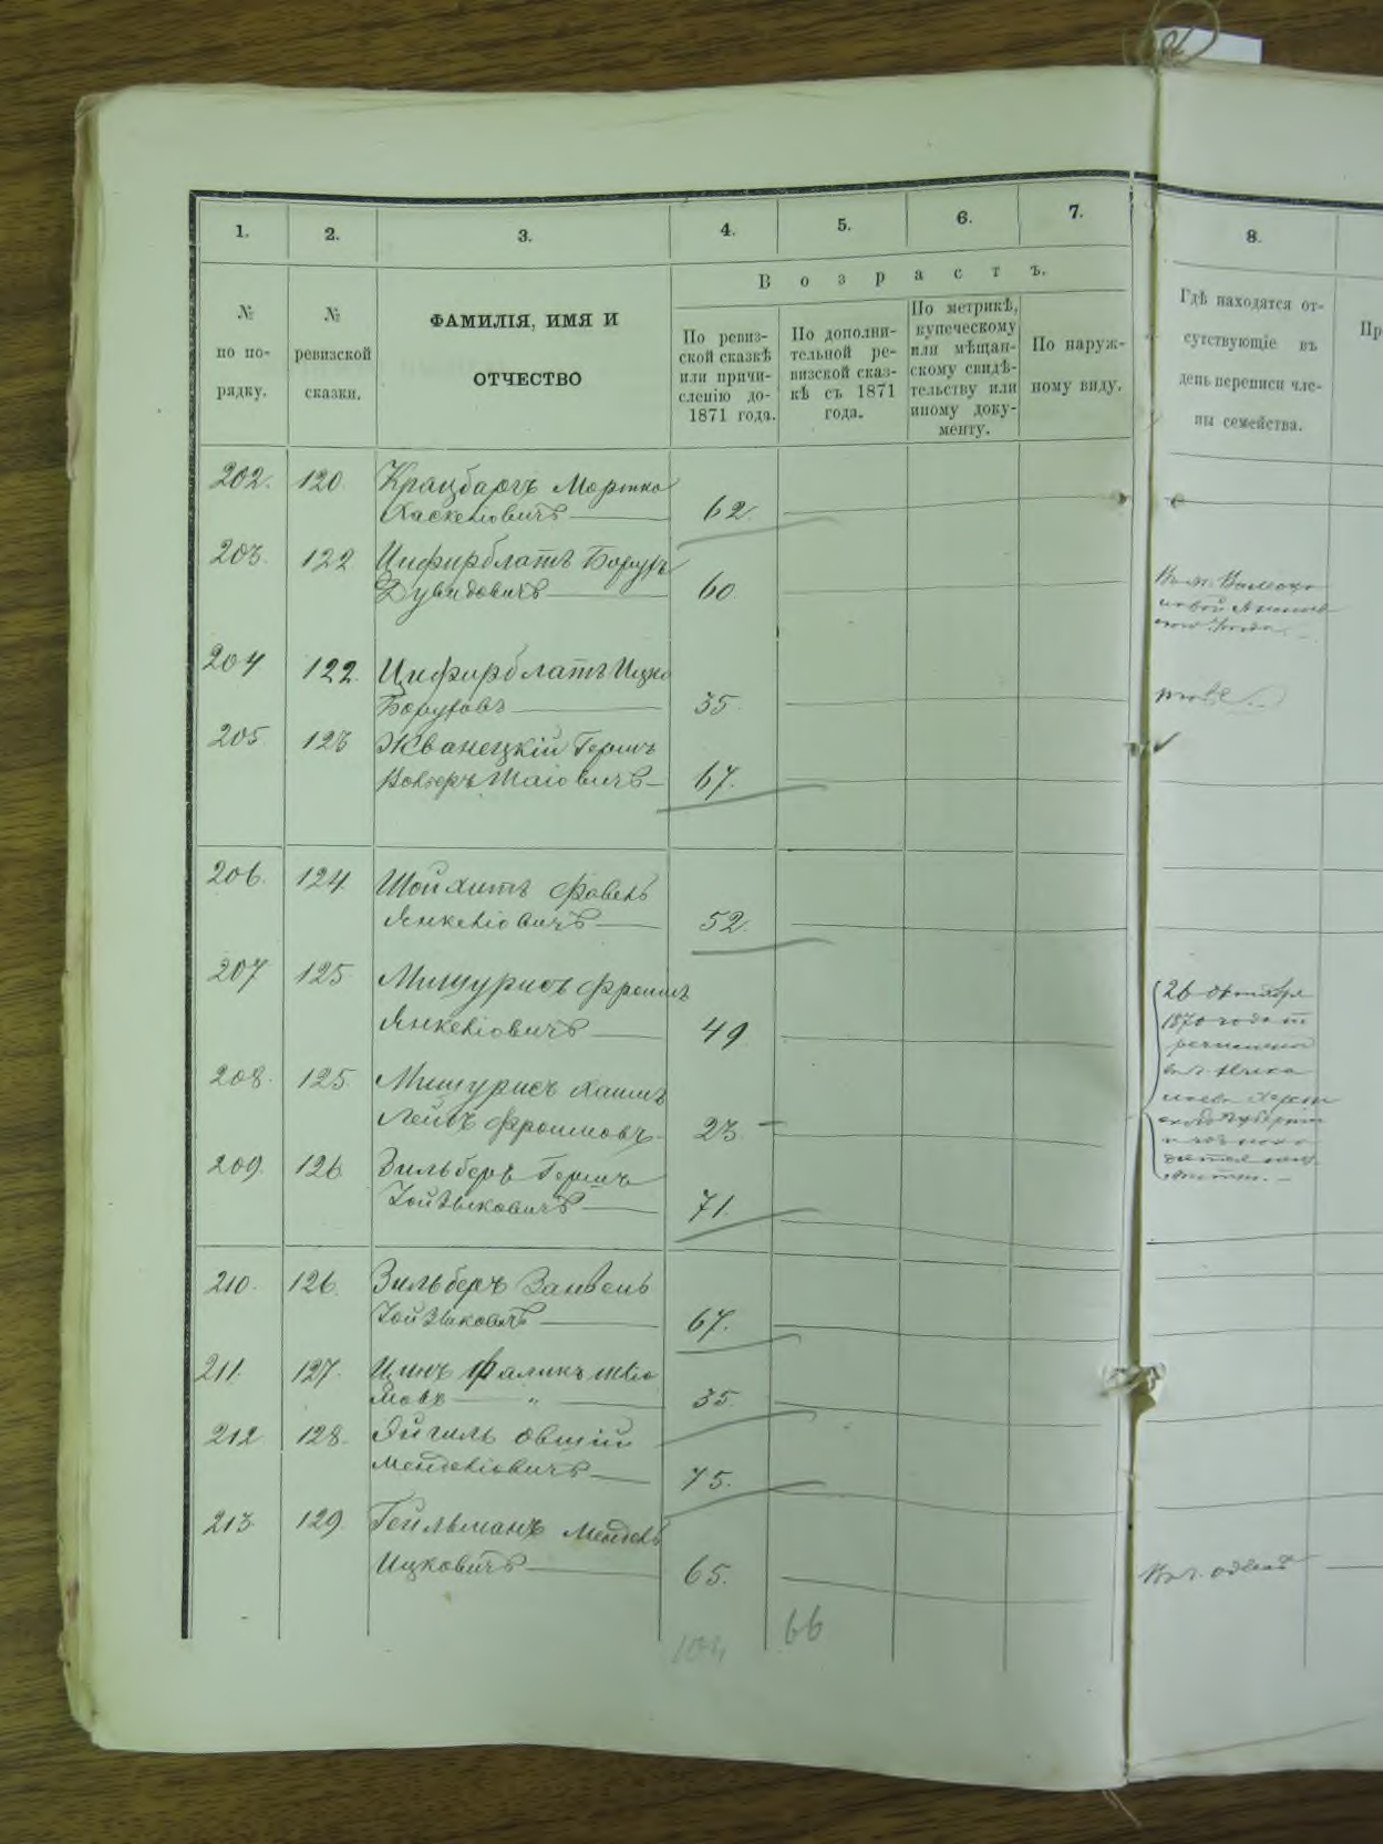 1.
2.
3.
4.
5.
6.
7.
8.
№
по по-
рядку.
№
ревизской
сказки.
ФАМИЛІЯ, ИМЯ И
ОТЧЕСТВО
Возрастъ.
По ревиз-
ской сказкѣ
или причи-
сленію до-
1871 года.
По дополни-
тельной ре-
визской сказ-
кѣ съ 1871
года.
По метрикѣ,
купеческому
или мѣщан-
скому свидѣ-
тельству или
иному доку-
менту.
По наруж-
ному виду.
Гдѣ находятся от-
сутствующіе въ
день переписи чле-
ны семейства.
Пр
202. 120. Крацбаргъ Мортко
Хаскеліовичъ 62.
203. 122 Цифирблатъ Борухъ
Дувидовичъ 60
204 122. Цифирблатъ Ицко
Боруховъ 35.
205 123 Жванецкій Гершъ
Волберъ Шаіовичъ 67.
206. 124. Шойхитъ Фавель
Янкеліовичъ 52.
207 125 Мишурисъ Фроимъ
Янкеліовичъ 49
26 Октября
1870 года
208. 125. Мишурисъ Хаимъ
Лейбъ Фроимовъ 23
209. 126 Зильберъ Гершъ
Зойзыковичъ 71.
210. 126. Зильберъ Занвель
Зойзыковичъ 67.
211. 127. Цинъ Фаликъ Шліо
мовъ " 35.
212 128. Эйгиль Овшій
Менделіовичъ 75.
213. 129. Гейльманъ Мендель
Ицковичъ 65.
66
104